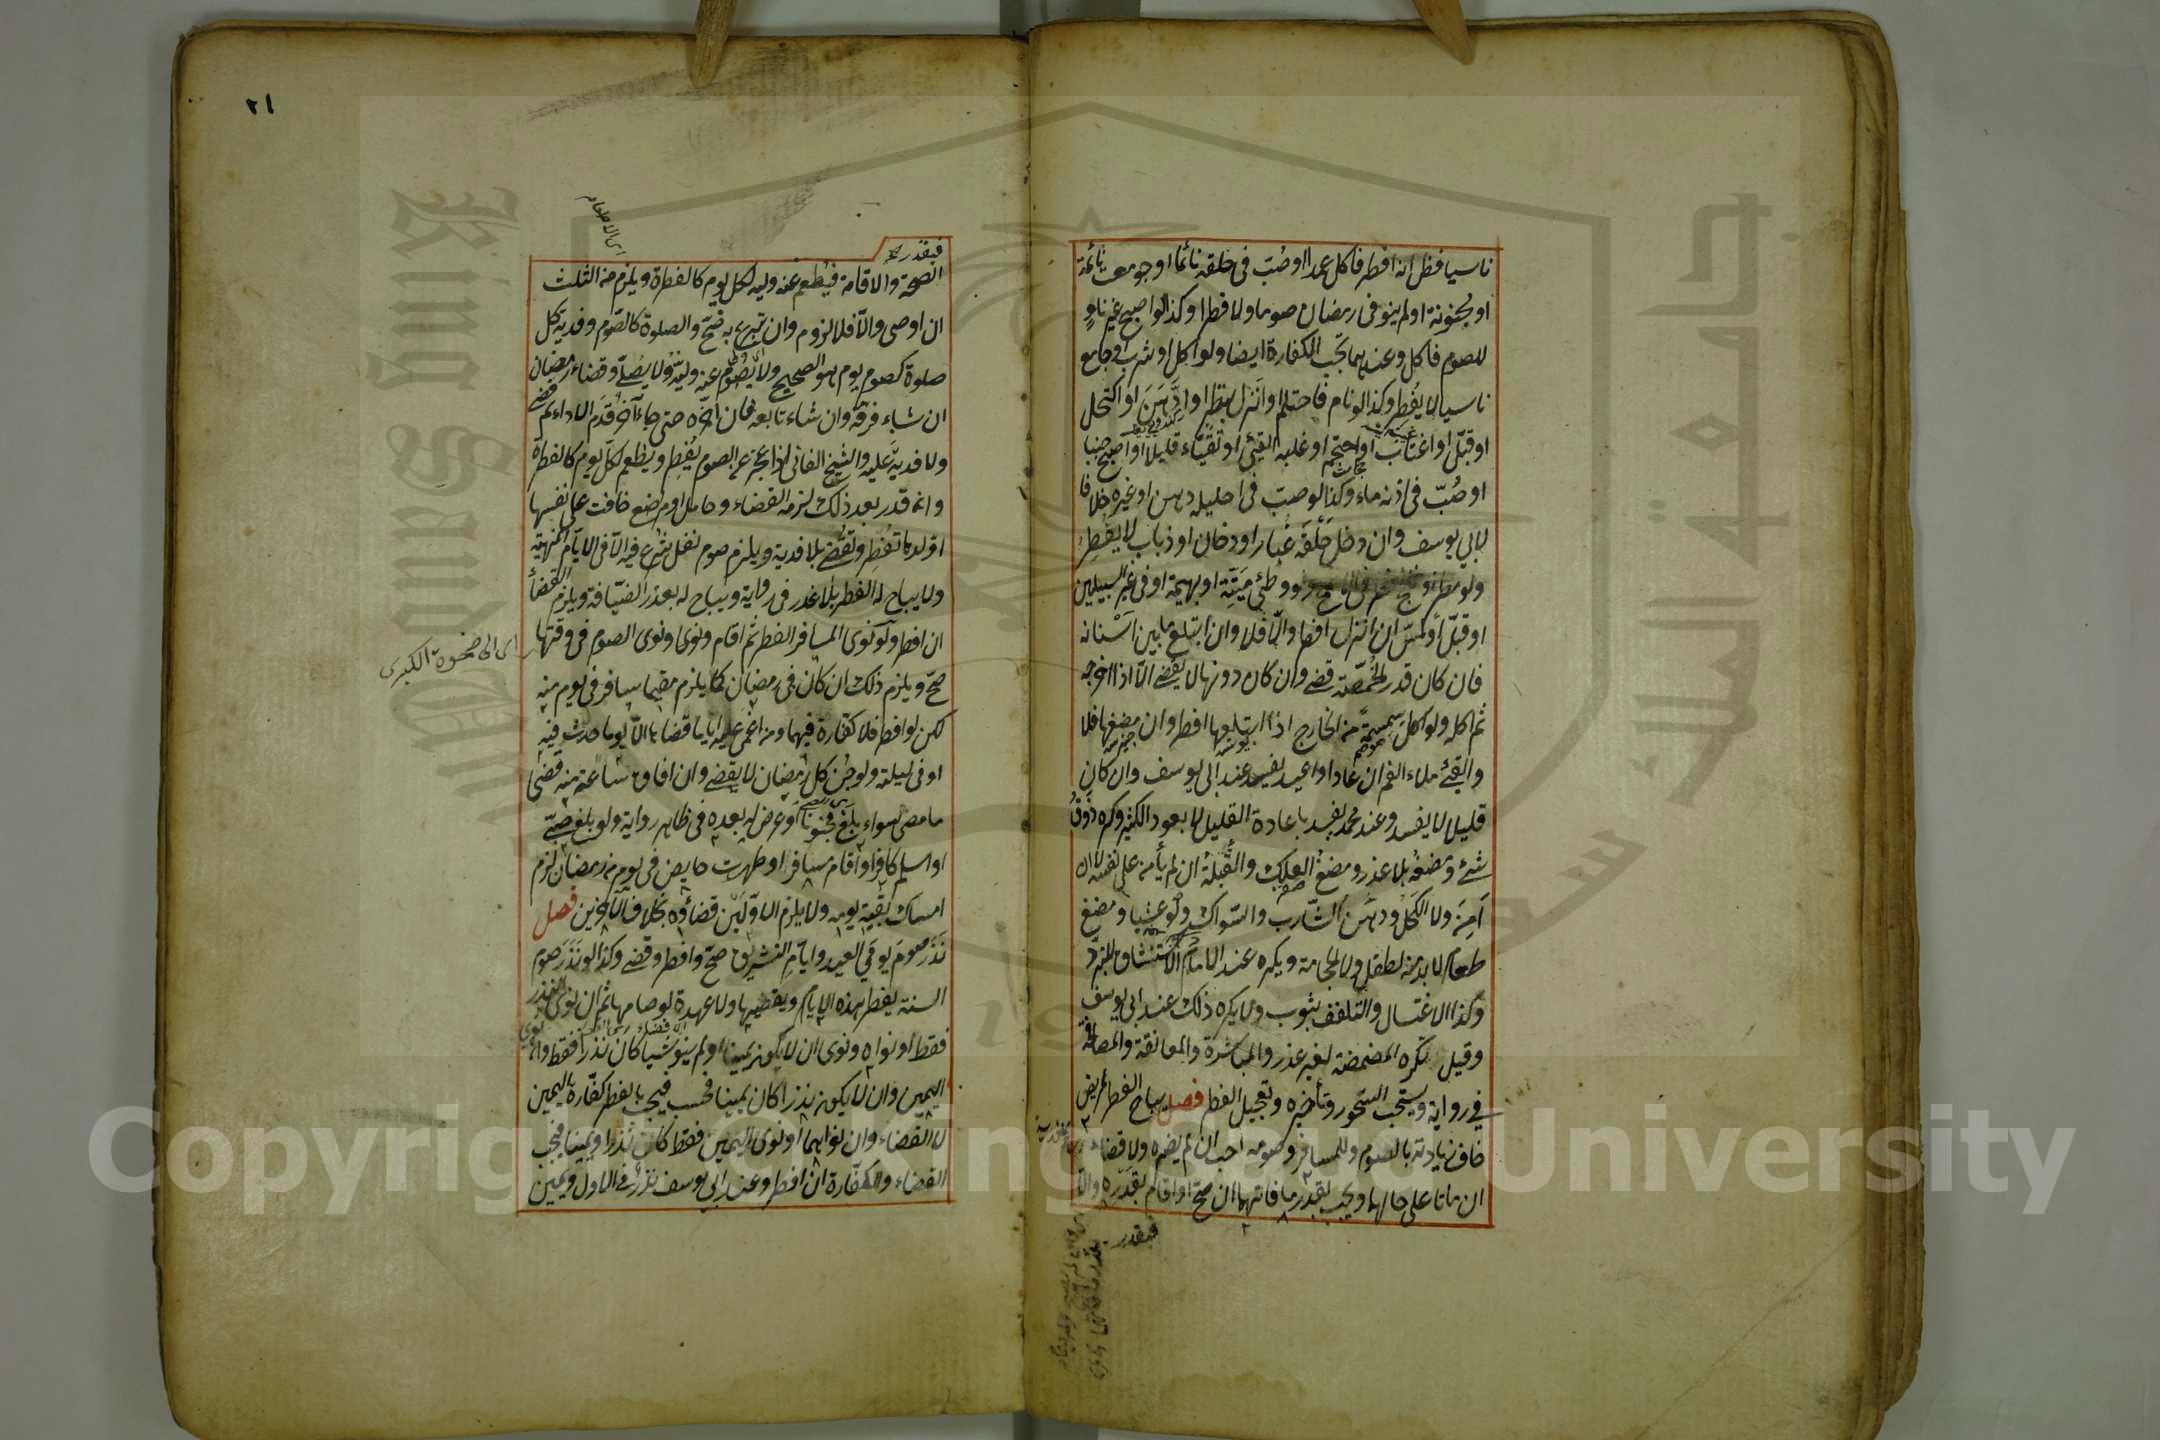 ناسيا فظن انه افطر فاكل عمدا او صُبّ فى حلقه نائما او جومعت نائمة
او مجنونة او لم ينو فى رمضان صوما ولا فطرا وكذا لو اصبح غير ناوٍ
للصوم فاكل وعندهما تجب الكفارة ايضا ولو اكل او شرب او جامع
ناسيا لا يُفطر وكذا لو نام فاحتلم او اَنزل بنظرٍ او ادَّهَنَ او اكتحل
او قبّل او اغتاب او احتجم او غلبه القيئ او تقيّاء قليلا او اصبح جنبا
او صُبّ فى اذنه ماء وكذا لو صبّ فى احليله دهن او غيره خلافا
لابي يوسف وان دخل حَلْقَه غبار او دخان او ذباب لا يفطِر
ولو وطئ مَيّتة او بهيمة او فى غير السبيلين
او قبّل او لمسَ ان انزل افطر والّا فلا وان ابتلع ما بين اسْنانه
فان كان قدر الحُمّصَة قضى وان كان دونها لا يقضى الّا اذا اخرجه
ثم اكله ولو اكل سِمسِمةً من الخارج اذا ابتلعها افطر وان مضغها فلا
والقئ ملاء الفم ان عاد او اعيد يفسد عند ابى يوسف وان كان
قليلا لا يفسد وعند محمد يفسد باعادة القليل لا بعود الكثير وكره ذَوقُ
شئ ومضغه بلا عذر ومضغُ العِلك والقُبلةُ ان لم يأمن على نفسه لا ان
اَمِنَ ولا الكحل ودهن الشّارب والسّواك ولو عشيا ومضغ
طعام لا بد منه لطفل ولا الحجامة ويكره عند الامام الاستنشاق للتبرّد
وكذا الاغتسال والتلفف بثوب ولا يكره ذلك عند ابى يوسف
وقيل تكره المضمضة لغير عذر والمباشرة والمعانقة والمصافحة
في رواية ويستحب السّحور وتأخيره وتعجيل الفطر فصل يباح الفطر لمريض
خاف زيادته بالصوم وللمسافر وصومه احب ان لم يضره ولا قضاء
ان ماتا على حالهما ويجب بقدر ما فاتهما ان صحّ او اقام بقدره والّا
فبقدر
٢١
اى الاطعام
فبقدر
الصحة والاقامة فيُطعم عنه وليه لكل يوم كالفطرة ويلزم من الثلث
ان اوصى والّا فلا لزوم وان تبرع به صحّ والصلوة كالصّوم وفدية كل
صلوة كصوم يوم هو الصحيح ولا يصوم عنه وليّه ولا يصلّى وقضاء رمضان
ان شاء فرقه وان شاء تابعه فان اخّره حتى جاء آخر قَدّم الاداء ثم قضى
ولا فدية عليه والشيخ الفانى اذا عجز عن الصوم يُفطِر ويطعم لكلّ يوم كالفطرة
وان قدر بعد ذلك لزمه القضاء وحامل او مرضع خافت على نفسها
او ولدها تفطِر وتقضى بلا فدية ويلزم صوم نفل شرع فيه الّا فى الايّام المنهية
ولا يباح له الفطر بلا عذر فى رواية ويباح له بعذر الضيافة ويلزم القضاء
ان افطر ولو نوى المسافر الفطر ثم اقام ونوى الصوم فى وقتها
اى الى ضحوة الكبرى
صحّ ويلزم ذلك ان كان فى رمضان كما يلزم مقيما سافر فى يوم منه
لكن لو افطر فلا كفارة فيهما ومن اغمى عليه اياما قضاها الّا يوما حدث فيه
او فى ليلته ولو جُنّ كل رمضان لا يقضى وان افاق ساعة منه قضى
ما مضى سواء بلغ مجنونا او عرض له بعده فى ظاهر رواية ولو بلغ صبى
او اسلم كافر او اقام مسافر او طهرت حايض فى يوم من رمضان لزم
امساك بقية يومه ولا يلزم الاوّلَين قضاؤه بخلاف الآخرين فصل
نَذَر صومَ يومَي العيد وايّام التشريق صحّ وافطر وقضى وكذا لو نَذَر صوم
السنة يفطر هذه الايام ويقضيها ولا عهدة لو صامها ثم ان نوى النذر
فقط او نواه ونوى ان لا يكون يمينا او لم ينو شيأ كان نذرا فقط وان نوى
اليمين وان لا يكون نذرا كان يمينا فحسب فيجب بالفطر كفّارة اليمين
لا القضاء وان نواهما او نوى اليمين فقط كان نذرا ويمينا فيجب
القضاء والكفّارة ان افطر وعند ابي يوسف نذر فى الاول ويمين